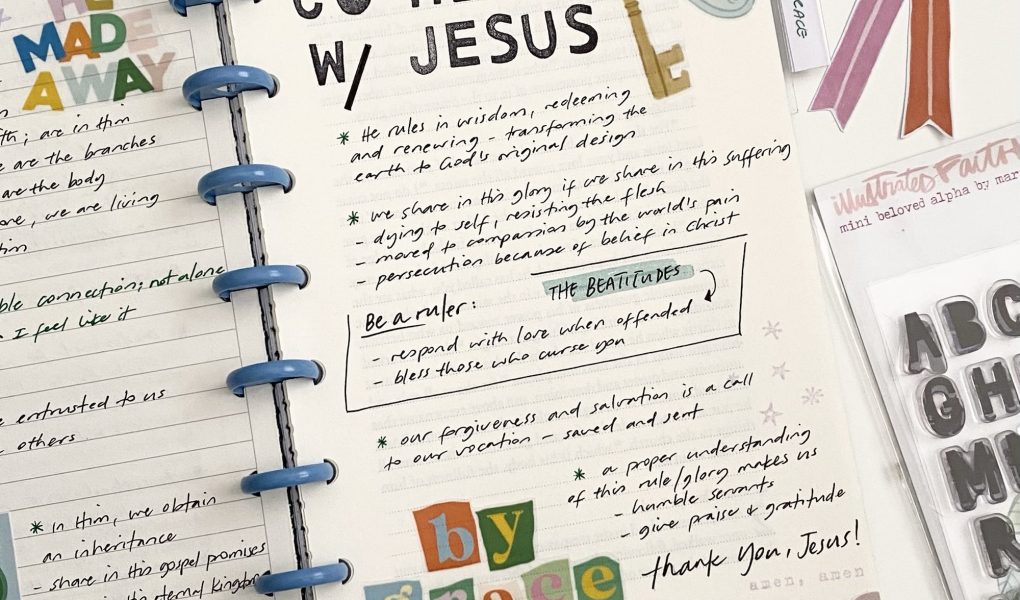 HE
MADE
A WAY
are in Him
are the branches
are the body
we are living
connection; not alone
I feel like it
entrusted to us
others
* in Him, we obtain
an inheritance
- share in His gospel promises
W/ JESUS
* He rules in wisdom, redeeming
and renewing - transforming the
earth to God's original design
* we share in His glory if we share in His suffering
- dying to self, resisting the flesh
- moved to compassion by the world's pain
- persecution because of belief in Christ
THE BEATITUDES
Be a ruler:
- respond with love when offended
- bless those who curse you
* our forgiveness and salvation is a call
to our vocation - saved and sent
* a proper understanding
of this rule/glory makes us
- humble servants
- give praise & gratitude
by
grace
thank you, Jesus!
amen, amen
PEACE
illustrated Faith
mini beloved alpha by
A B C
G H
M
R